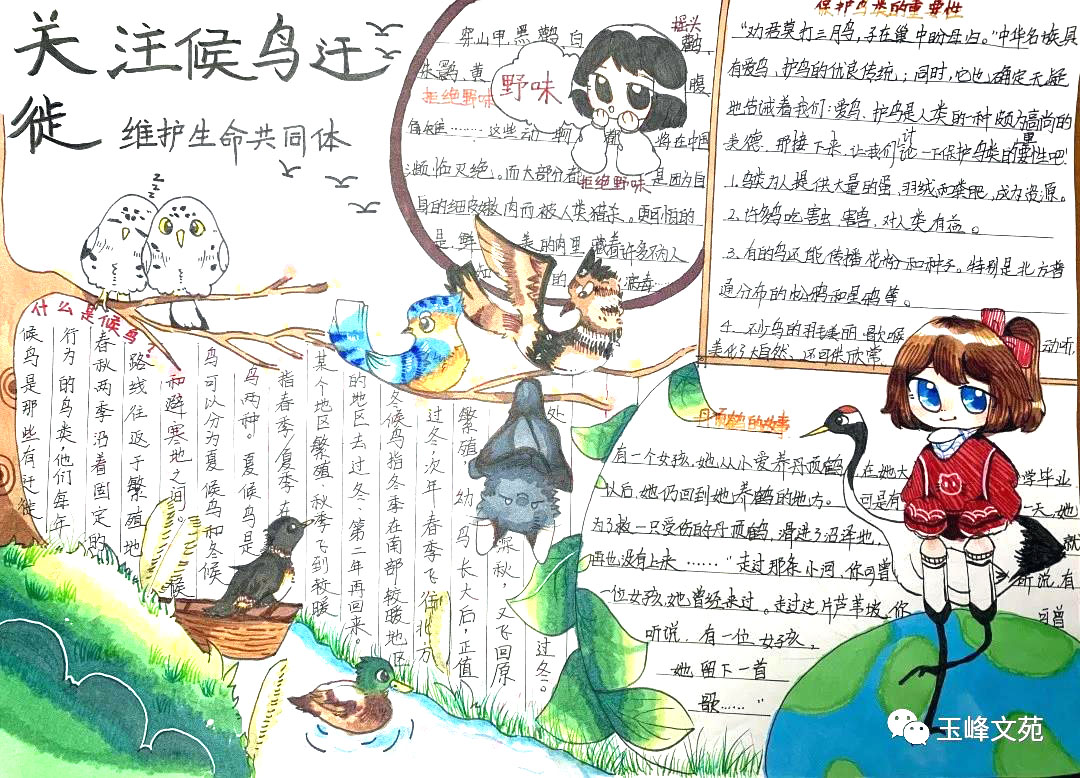 关注候鸟迁
徙
维护生命共同体
穿山甲 黑鹳 白
摇头
鹳、
朱鹮、黄
腹
拒绝野味
野味
角雉……这些动 都 将在中国
濒临灭绝。而大部分都 是因为自
拒绝野味
身的细皮嫩肉而被人类猎杀。更可怕的
是 鲜 美的肉里 藏着许多不为人
的 病毒…
保护鸟类的重要性
“劝君莫打三月鸟,子在巢中盼母归。”中华名族具
有爱鸟、护鸟的优良传统;同时,它也 确定无疑
地告诫着我们:爱鸟、护鸟是人类的一种颇为高尚的
美德。那接下来,让我们讨论一下保护鸟类的重要性吧!
1.鸟类为人提供大量的蛋、羽绒和粪肥,成为资源。
2.许多鸟吃害虫、害兽,对人类有益。
3.有的鸟还能传播花粉和种子。特别是北方普
遍分布的松鸦和星鸦等。
4. 不少鸟的羽毛美丽 歌喉 动听,
美化了大自然、还可供欣赏。
什么是候鸟?
候鸟是那些有迁徙
行为的鸟类,他们每年
春秋两季沿着固定的
路线往返于繁殖地
和避寒地之间。候
鸟可以分为夏候鸟和冬候
鸟两种。夏候鸟是
指春季夏季在
某个地区繁殖、秋季飞到较暖
的地区去过冬、第二年再回来,
冬候鸟指冬季在南部较暖地区
过冬,次年春季飞往北方
繁殖 幼鸟长大后,正值
深秋,又飞回原
外
过冬。
丹顶鹤的故事
有一个女孩,她从小爱养丹顶鹤,在她大 学毕业
以后,她仍回到她养鹤的地方。可是有 一天,她
为了救一只受伤的丹顶鹤,滑进了沼泽地, 就
再也没有上来……“走过那条小河,你可曾 听说,有
一位女孩,她曾经来过。走过这片芦苇坡,你 可曾
听说,有一位女孩,
她留下一首
歌……”
玉峰文苑